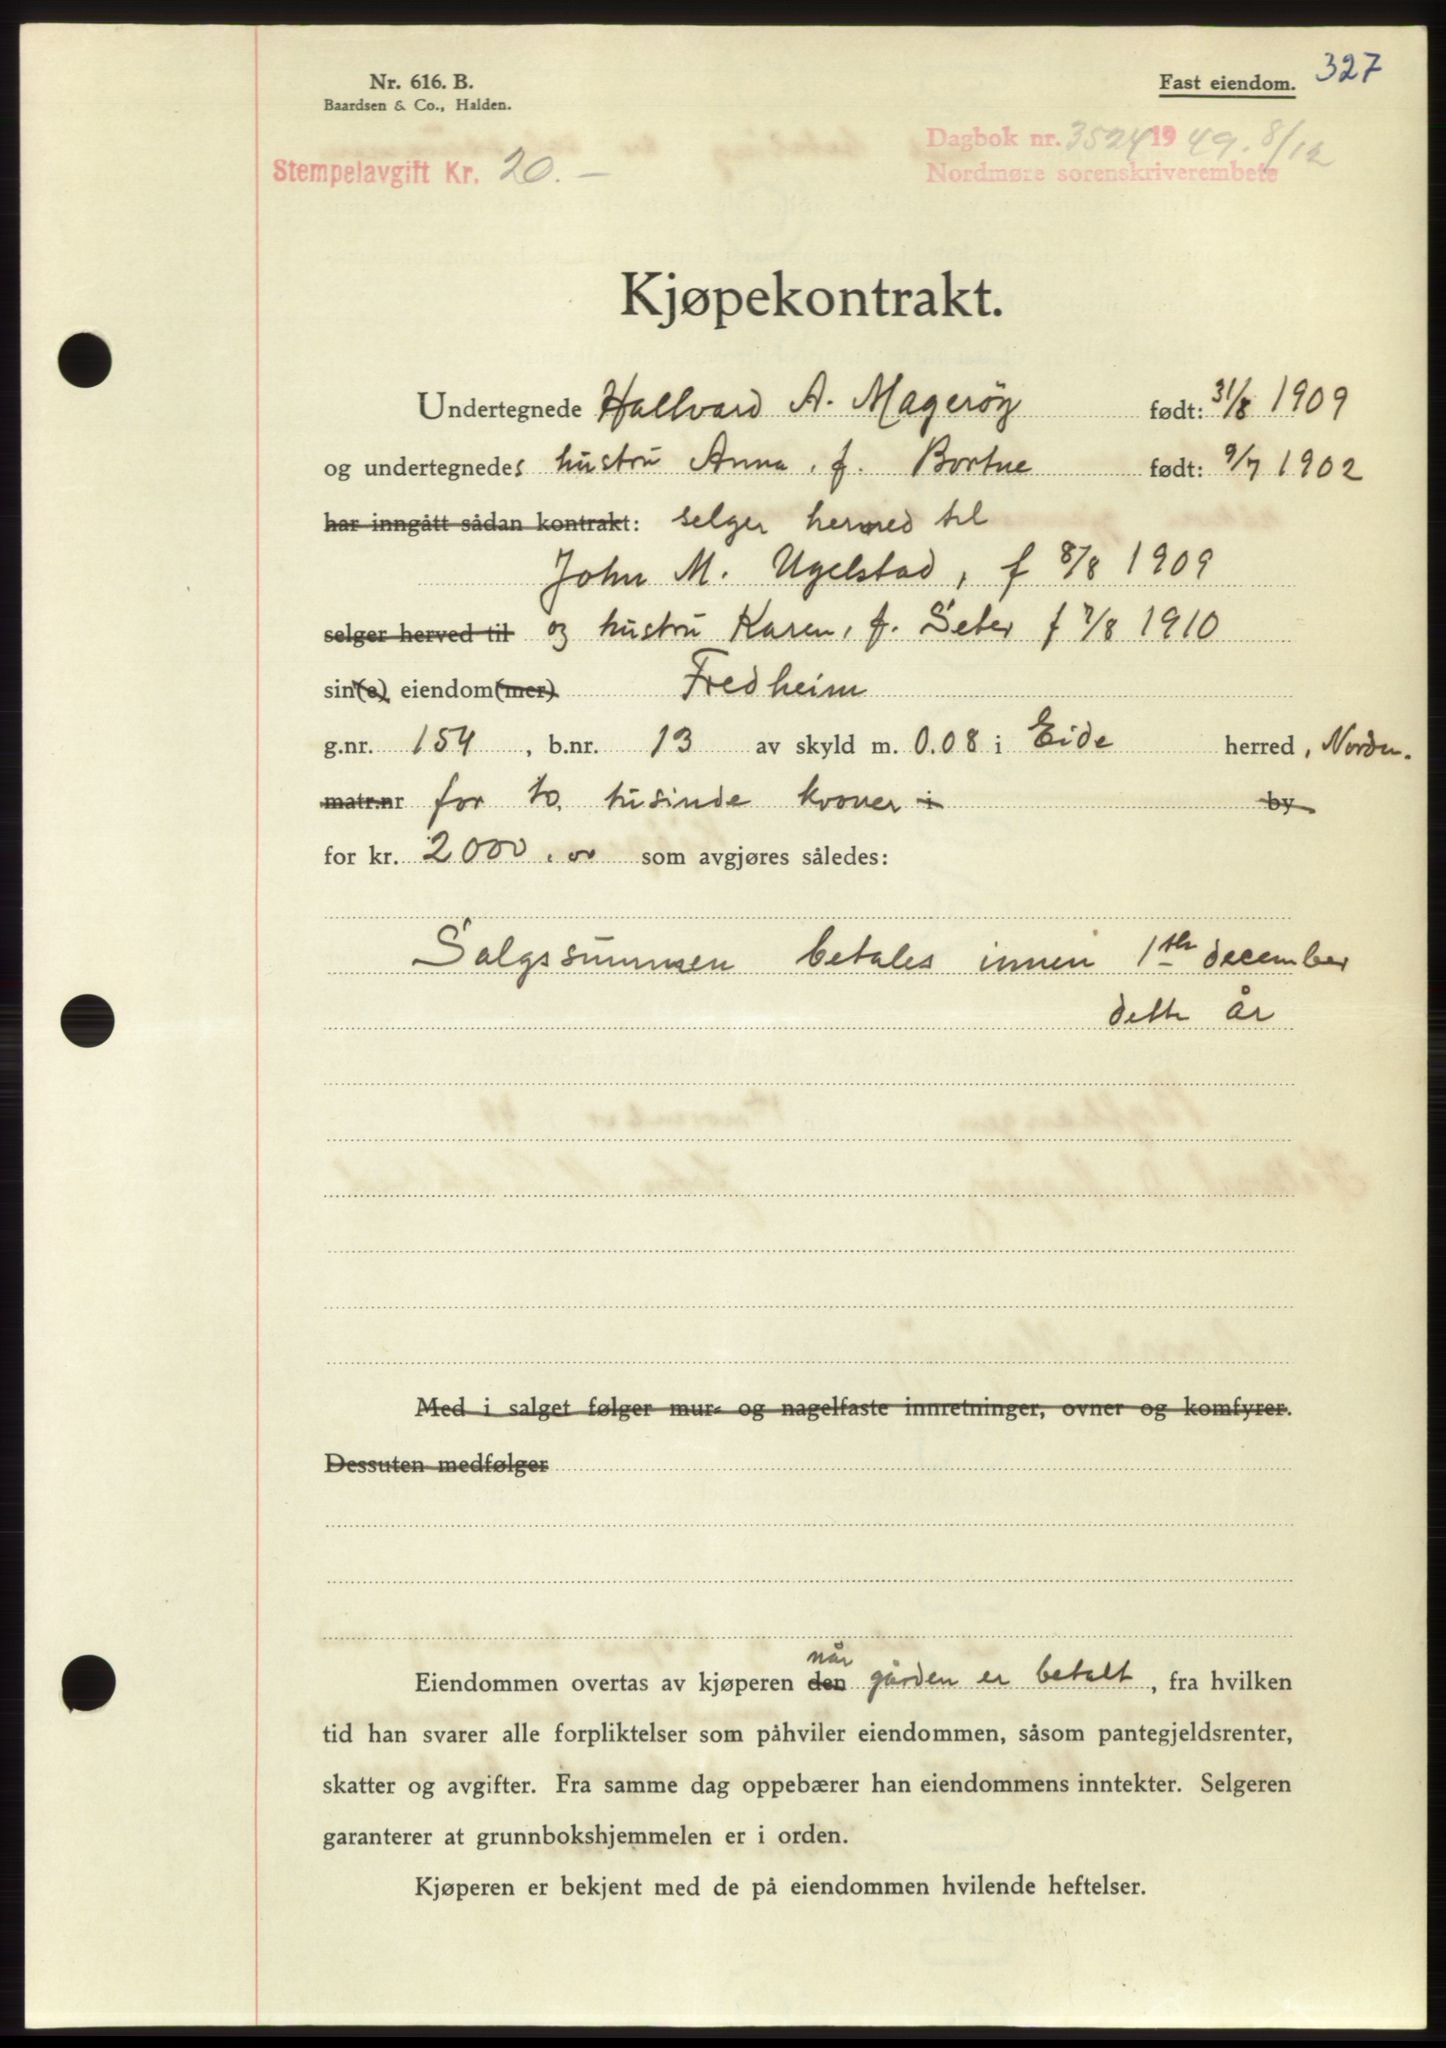 327
Nr. 616. B.
Baardsen & Co., Halden.
Fast eiendom.
Dagbok nr. 3524 1949. 8/12
Nordmøre sorenskriverembete
Stempelavgift Kr. 20.—
Kjøpekontrakt.
Undertegnede Hallvard A. Magerøy født: 31/8 1909
og undertegnedes hustru Anna, f. Bortne født: 9/7 1902
har inngått sådan kontrakt: selger herved til
John M. Ugelstad, f 8/8 1909
selger herved til og hustru Karen, f. Seter f 7/8 1910
sin(e) eiendom(mer) Fredheim
g.nr. 154, b.nr. 13 av skyld m. 0.08 i Eide herred, Nordm.
matr.nr for to tusinde kroner i by
for kr. 2000.00 som avgjøres således:
Salgssummen betales innen 1ste december
dette år
Med i salget følger mur- og nagelfaste innretninger, ovner og komfyrer.
Dessuten medfølger
når
Eiendommen overtas av kjøperen den gården er betalt, fra hvilken
tid han svarer alle forpliktelser som påhviler eiendommen, såsom pantegjeldsrenter,
skatter og avgifter. Fra samme dag oppebærer han eiendommens inntekter. Selgeren
garanterer at grunnbokshjemmelen er i orden.
Kjøperen er bekjent med de på eiendommen hvilende heftelser.